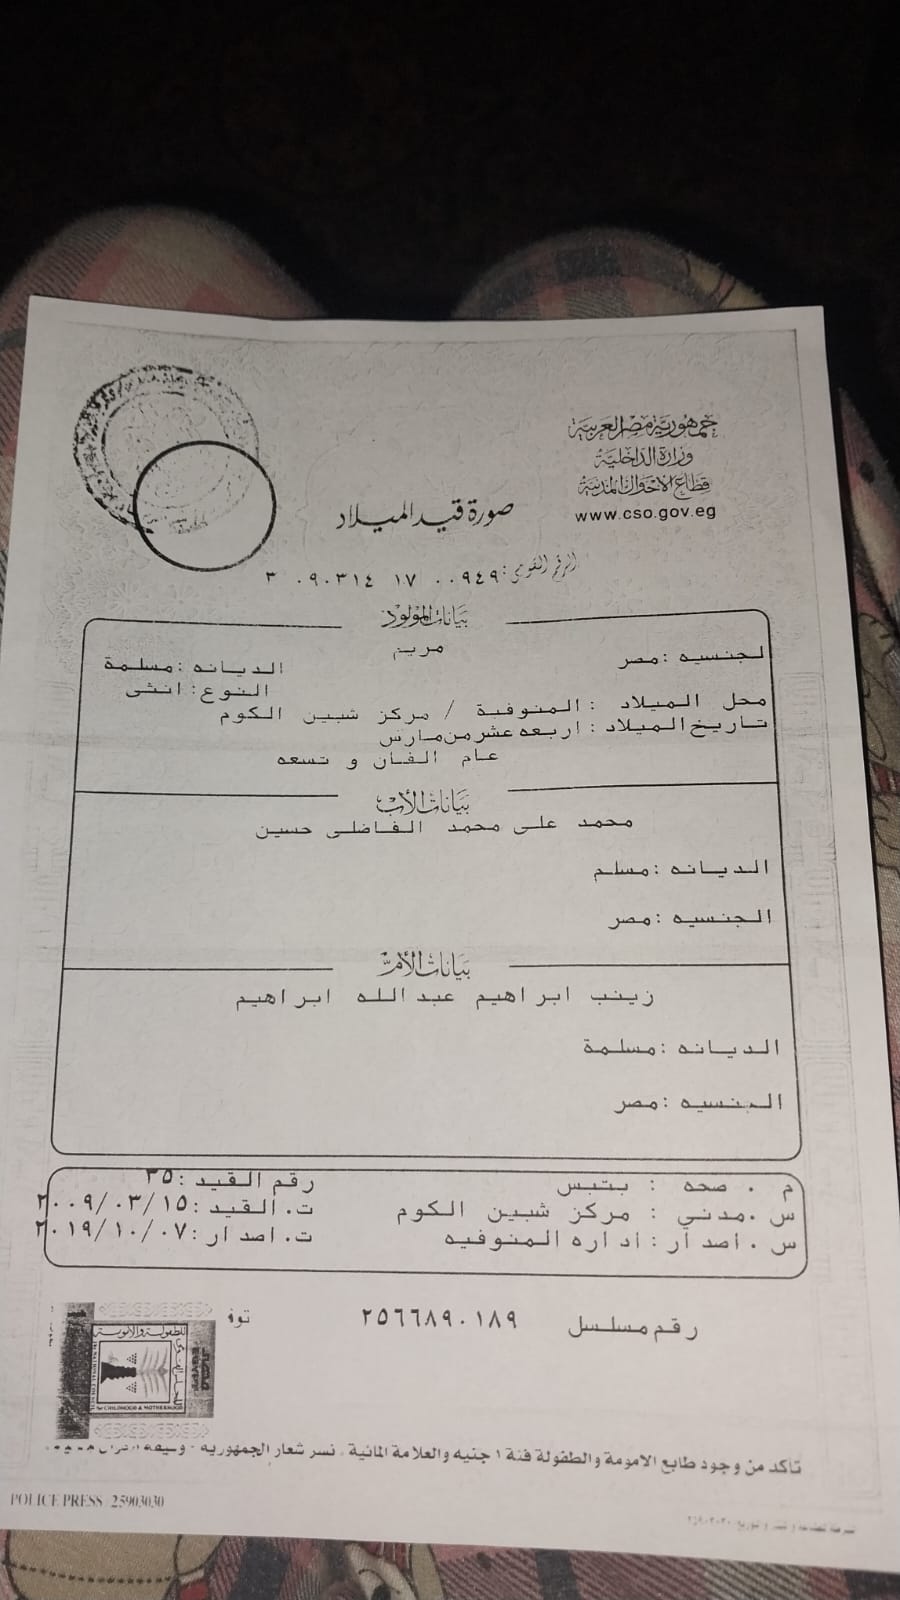 جمهورية مصر العربية
وزارة الداخلية
قطاع الأحوال المدنية
www.cso.gov.eg
صورة قيد الميلاد
الرقم القومى: ٣ ٠٩٠٣١٤ ١٧ ٠٠٩٤٩
بيانات المولود
مريم
لجنسيه :مصر الديانه :مسلمة
النوع: انثى
محل الميلاد : المنوفية / مركز شبين الكوم
تاريخ الميلاد : اربعه عشر من مارس
عام الفان و تسعه
بيانات الأب
محمد على محمد الفاضلى حسين
الديانه :مسلم
الجنسيه :مصر
بيانات الأم
زينب ابراهيم عبدالله ابراهيم
الديانه :مسلمة
الجنسيه :مصر
م . صحه : بتبس رقم القيد :٣٥
س .مدني : مركز شبين الكوم ت. القيد :٢٠٠٩/٠٣/١٥
س . اصدار : اداره المنوفيه ت. اصدار :٢٠١٩/١٠/٠٧
رقم مسلسل ٢٥٦٦٨٩٠١٨٩ توف
للطفولة والأمومة
CHILDHOOD & MOTHERHOOD
تأكد من وجود طابع الامومة والطفولة فئة ١ جنيه والعلامة المائية ، نسر شعار الجمهورية
POLICE PRESS / 25903030